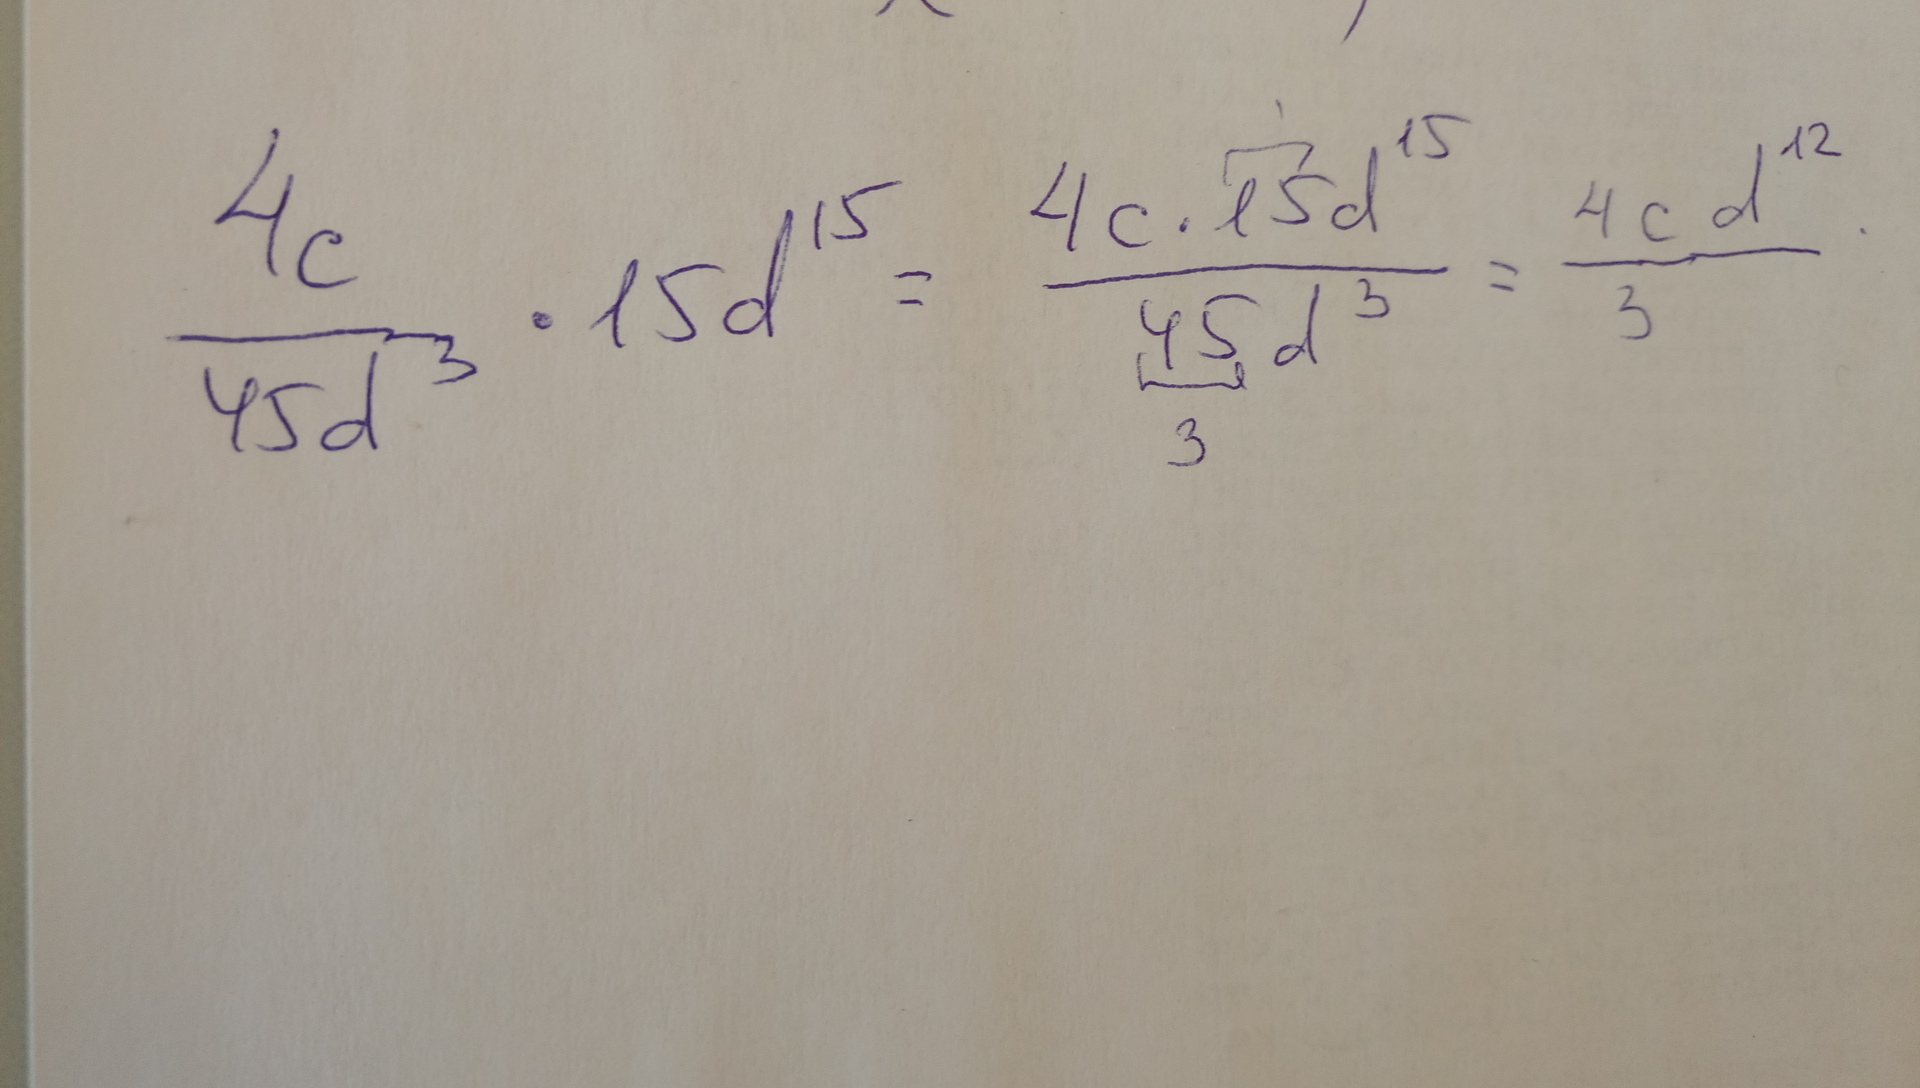 4c/45d³ · 15d¹⁵ = 4c · 15d¹⁵/45d³ = 4cd¹²/3.
3